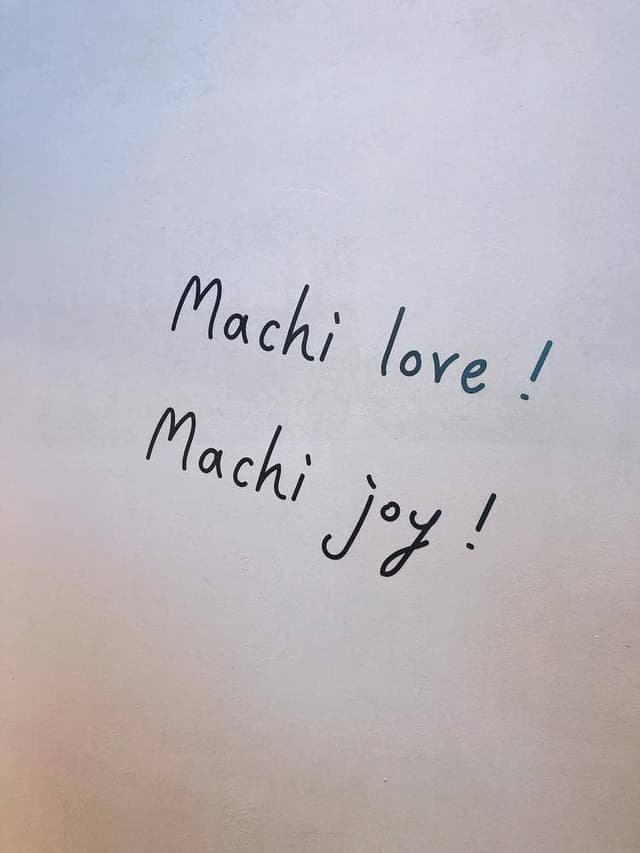 Machi love !
Machi joy !